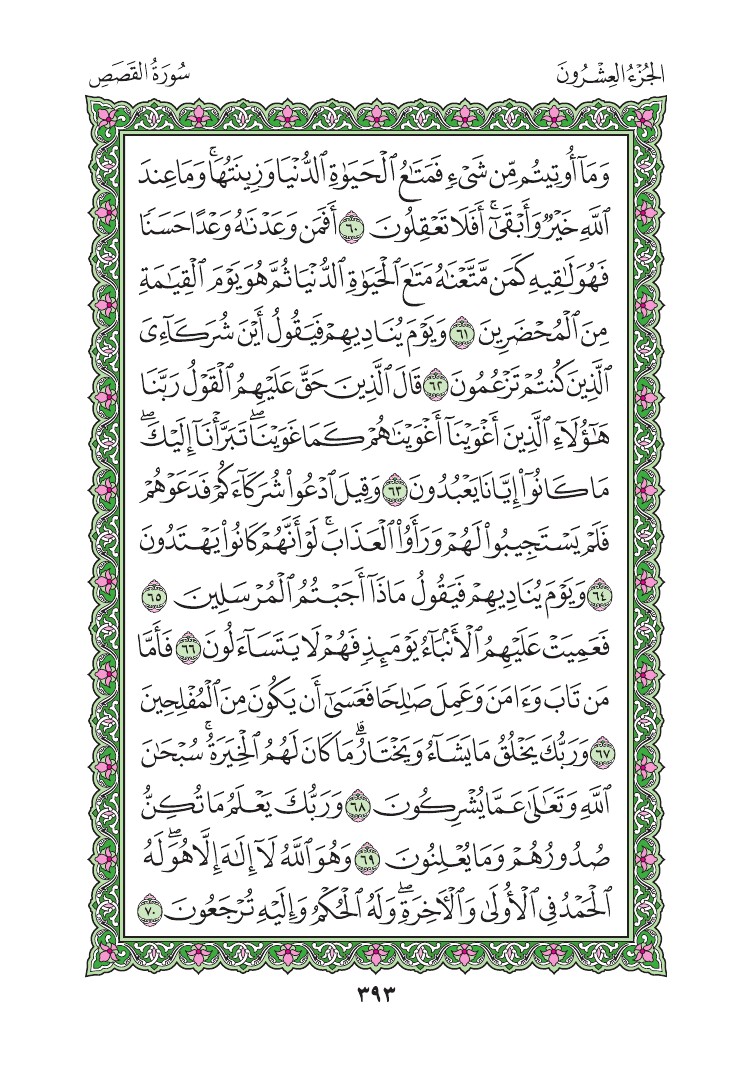 الجُزْءُ العِشْرُونَ
سُورَةُ القَصَصِ
وَمَآ أُوتِيتُم مِّن شَىْءٍ فَمَتَٰعُ ٱلْحَيَوٰةِ ٱلدُّنْيَا وَزِينَتُهَا ۚ وَمَا عِندَ
ٱللَّهِ خَيْرٌ وَأَبْقَىٰٓ ۚ أَفَلَا تَعْقِلُونَ ٦٠ أَفَمَن وَعَدْنَٰهُ وَعْدًا حَسَنًا
فَهُوَ لَٰقِيهِ كَمَن مَّتَّعْنَٰهُ مَتَٰعَ ٱلْحَيَوٰةِ ٱلدُّنْيَا ثُمَّ هُوَ يَوْمَ ٱلْقِيَٰمَةِ
مِنَ ٱلْمُحْضَرِينَ ٦١ وَيَوْمَ يُنَادِيهِمْ فَيَقُولُ أَيْنَ شُرَكَآءِىَ
ٱلَّذِينَ كُنتُمْ تَزْعُمُونَ ٦٢ قَالَ ٱلَّذِينَ حَقَّ عَلَيْهِمُ ٱلْقَوْلُ رَبَّنَا
هَٰٓؤُلَآءِ ٱلَّذِينَ أَغْوَيْنَآ أَغْوَيْنَٰهُمْ كَمَا غَوَيْنَا ۖ تَبَرَّأْنَآ إِلَيْكَ ۖ
مَا كَانُوٓا۟ إِيَّانَا يَعْبُدُونَ ٦٣ وَقِيلَ ٱدْعُوا۟ شُرَكَآءَكُمْ فَدَعَوْهُمْ
فَلَمْ يَسْتَجِيبُوا۟ لَهُمْ وَرَأَوُا۟ ٱلْعَذَابَ ۚ لَوْ أَنَّهُمْ كَانُوا۟ يَهْتَدُونَ
٦٤ وَيَوْمَ يُنَادِيهِمْ فَيَقُولُ مَاذَآ أَجَبْتُمُ ٱلْمُرْسَلِينَ ٦٥
فَعَمِيَتْ عَلَيْهِمُ ٱلْأَنۢبَآءُ يَوْمَئِذٍ فَهُمْ لَا يَتَسَآءَلُونَ ٦٦ فَأَمَّا
مَن تَابَ وَءَامَنَ وَعَمِلَ صَٰلِحًا فَعَسَىٰٓ أَن يَكُونَ مِنَ ٱلْمُفْلِحِينَ
٦٧ وَرَبُّكَ يَخْلُقُ مَا يَشَآءُ وَيَخْتَارُ ۗ مَا كَانَ لَهُمُ ٱلْخِيَرَةُ ۚ سُبْحَٰنَ
ٱللَّهِ وَتَعَٰلَىٰ عَمَّا يُشْرِكُونَ ٦٨ وَرَبُّكَ يَعْلَمُ مَا تُكِنُّ
صُدُورُهُمْ وَمَا يُعْلِنُونَ ٦٩ وَهُوَ ٱللَّهُ لَآ إِلَٰهَ إِلَّا هُوَ ۖ لَهُ
ٱلْحَمْدُ فِى ٱلْأُولَىٰ وَٱلْـَٔاخِرَةِ ۖ وَلَهُ ٱلْحُكْمُ وَإِلَيْهِ تُرْجَعُونَ ٧٠
٣٩٣